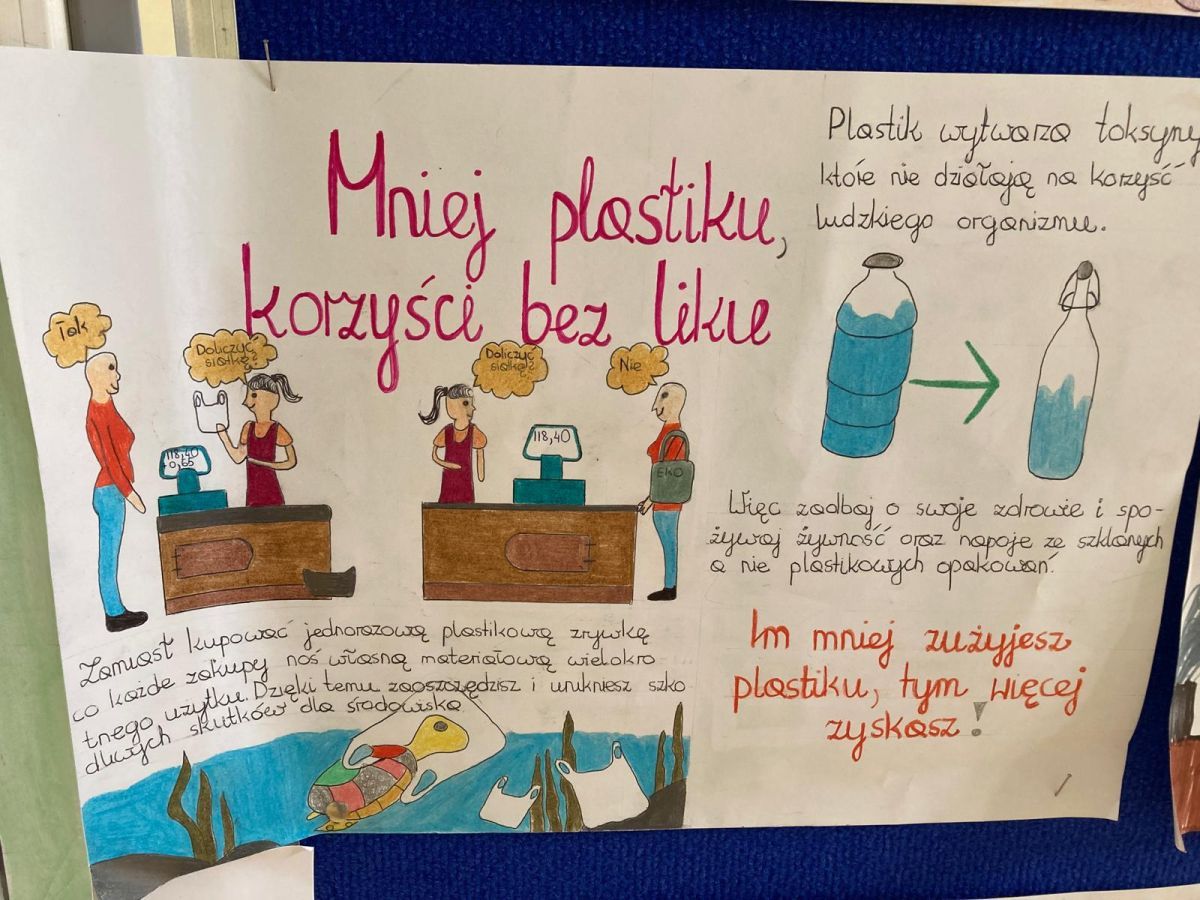 Mniej plastiku,
korzyści bez liku
Plastik wytwarza toksyny
które nie działają na korzyść
ludzkiego organizmu.
Tak
Doliczyć
siatkę?
118,40
+0,65
Doliczyć
siatkę?
Nie
118,40
EKO
Więc zadbaj o swoje zdrowie i spo-
żywaj żywność oraz napoje ze szklanych
a nie plastikowych opakowań.
Zamiast kupować jednorazową plastikową zrywkę
co każde zakupy noś własną materiałową wielokro
tnego użytku. Dzięki temu zaoszczędzisz i unikniesz szko
dliwych skutków dla środowiska
Im mniej zużyjesz
plastiku, tym więcej
zyskasz!